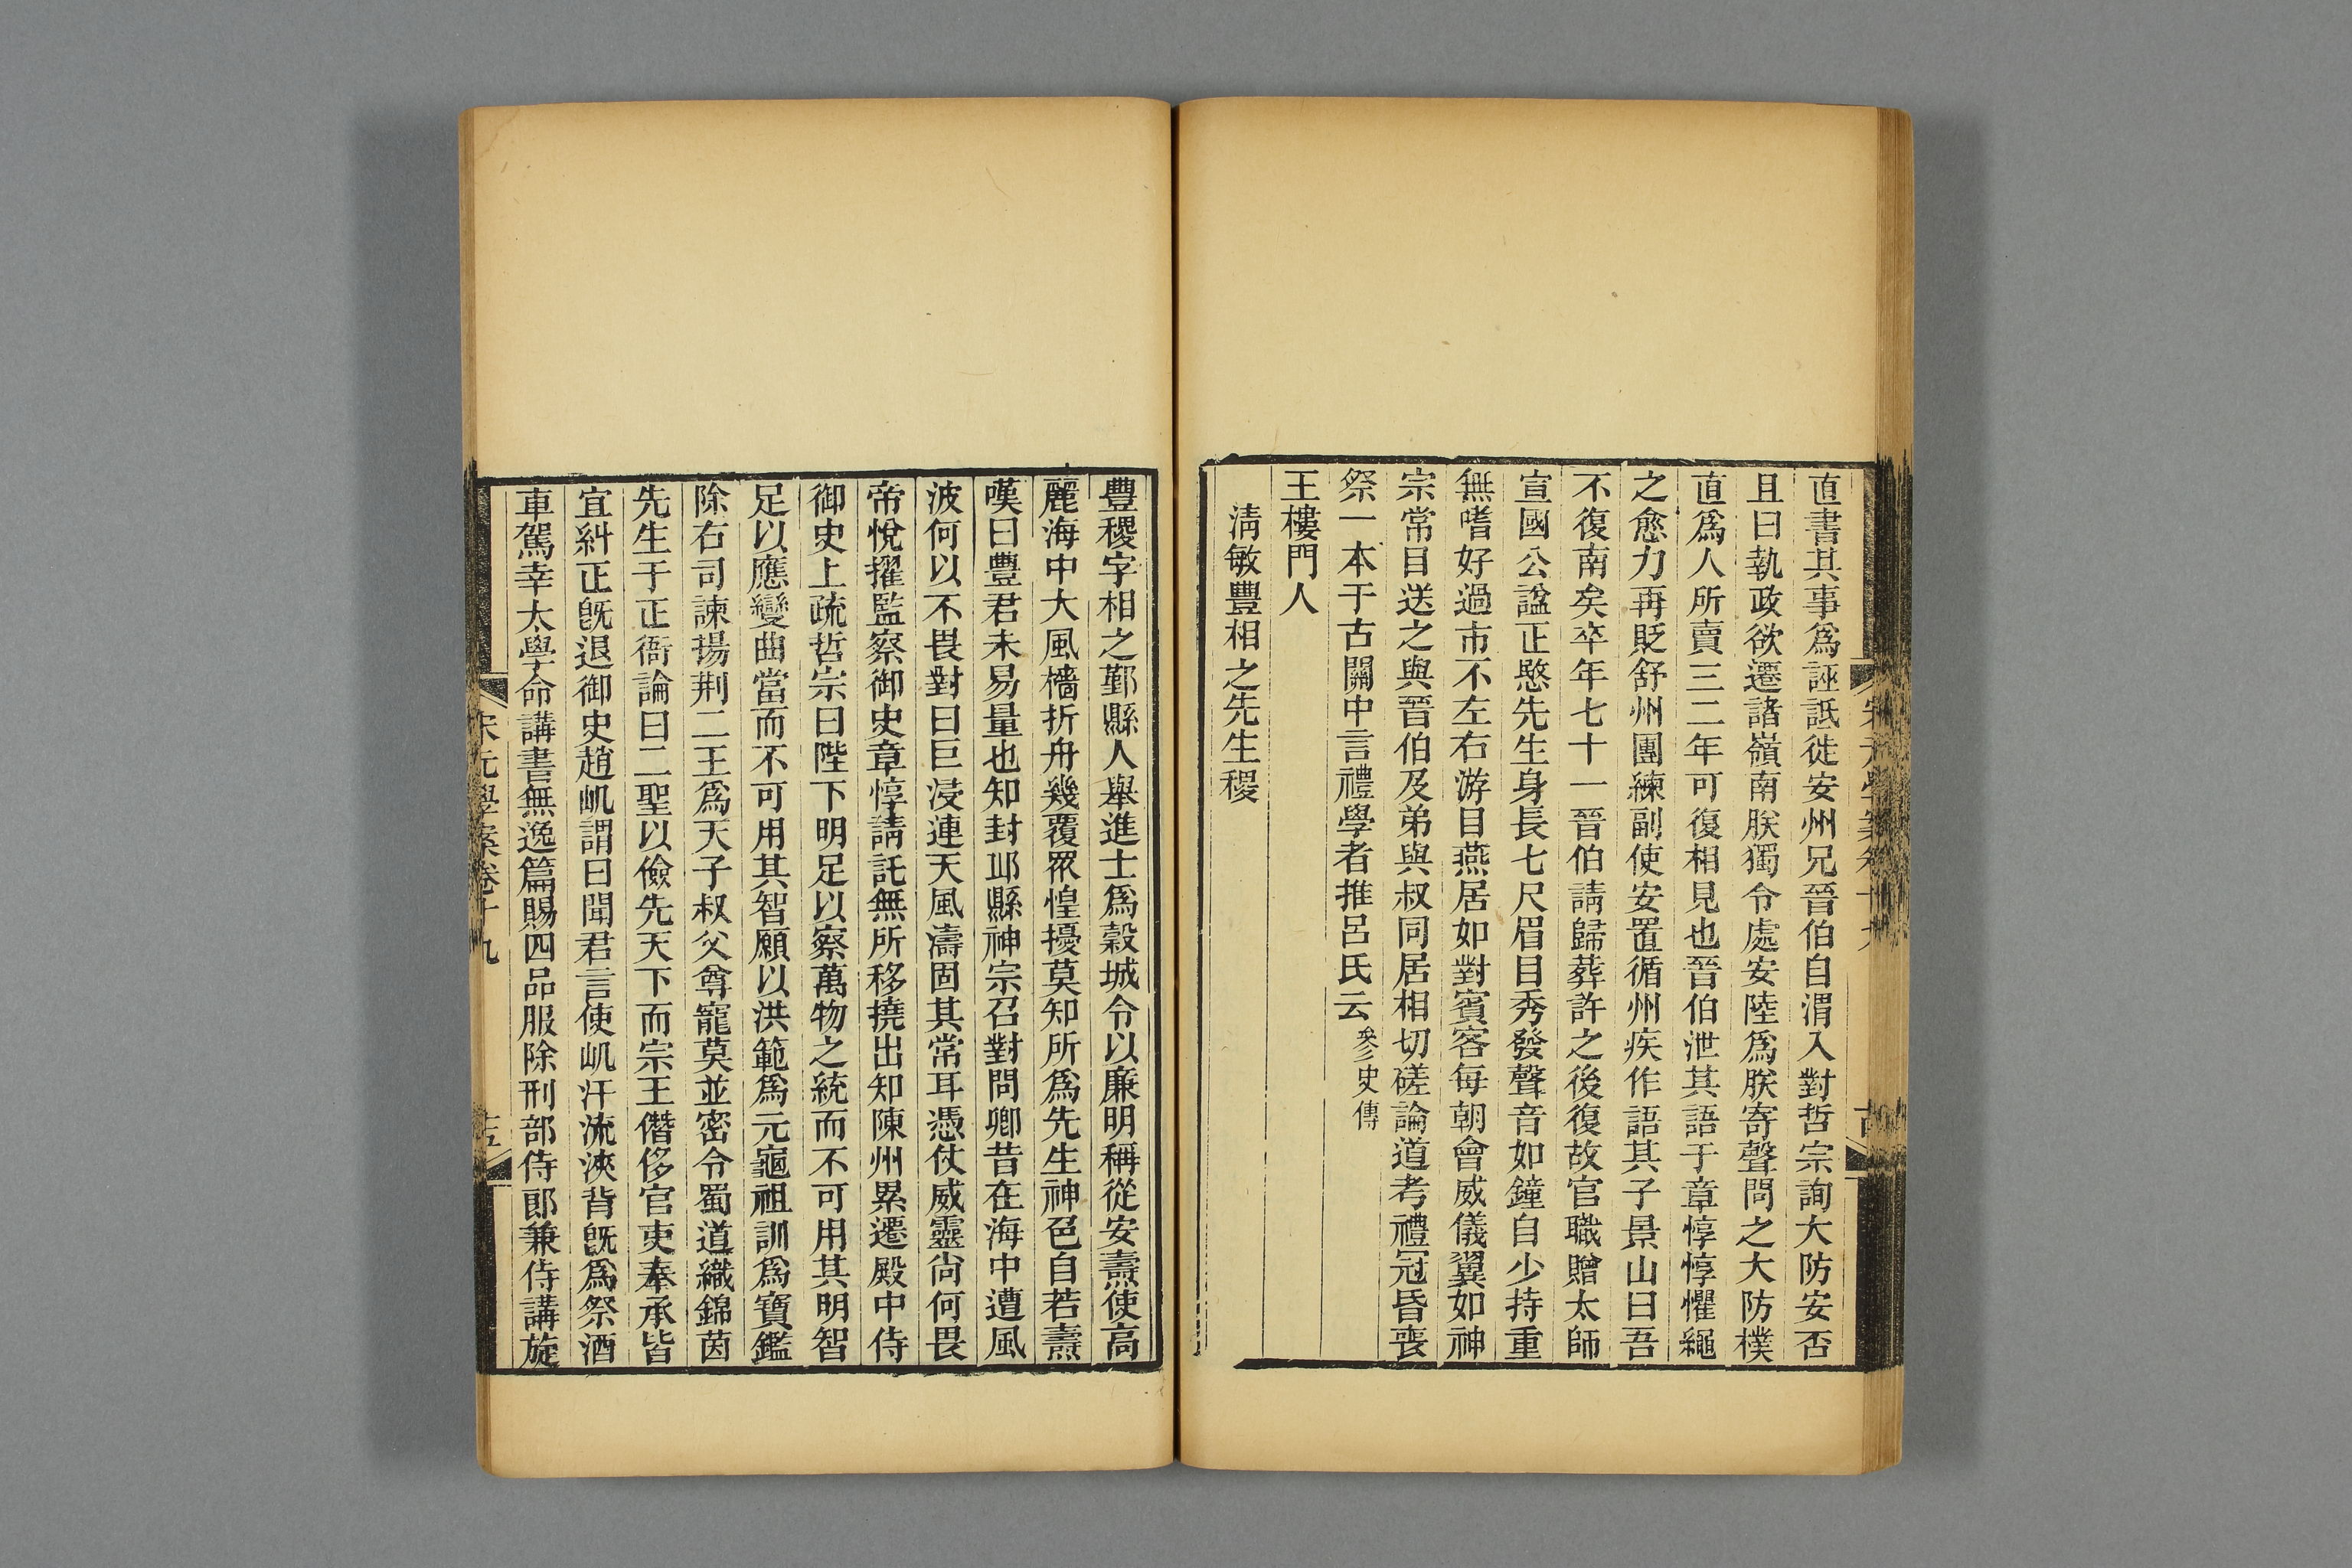 直書其事爲誣詆徙安州兄晉伯自渭入對哲宗詢大防安否
且曰執政欲遷諸嶺南朕獨令處安陸爲朕寄聲問之大防樸
直爲人所賣三二年可復相見也晉伯泄其語于章惇惇懼繩
之愈力再貶舒州團練副使安置循州疾作語其子景山曰吾
不復南矣卒年七十一晉伯請歸葬許之後復故官職贈太師
宣國公諡正愍先生身長七尺眉目秀發聲音如鐘自少持重
無嗜好過市不左右游目燕居如對賓客每朝會威儀翼如神
宗常目送之與晉伯及弟與叔同居相切磋論道考禮冠昏喪
祭一本于古關中言禮學者推呂氏云參史傳
王樓門人
清敏豐相之先生稷
豐稷字相之鄞縣人舉進士爲穀城令以廉明稱從安燾使高
麗海中大風檣折舟幾覆眾惶擾莫知所爲先生神色自若燾
嘆曰豐君未易量也知封邱縣神宗召對問卿昔在海中遭風
波何以不畏對曰巨浸連天風濤固其常耳憑仗威靈尙何畏
帝悅擢監察御史章惇請託無所移撓出知陳州累遷殿中侍
御史上疏哲宗曰陛下明足以察萬物之統而不可用其明智
足以應變曲當而不可用其智願以洪範爲元龜祖訓爲寶鑑
除右司諫揚荆二王爲天子叔父尊寵莫並密令蜀道織錦茵
先生于正衙論曰二聖以儉先天下而宗王僭侈官吏奉承皆
宜糾正旣退御史趙屼謂曰聞君言使屼汗流浹背旣爲祭酒
車駕幸太學命講書無逸篇賜四品服除刑部侍郎兼侍講旋
宋元學案卷十九
十五